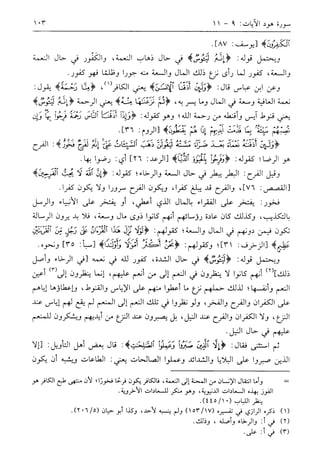 سورة هود الآيات: ٩ - ١١
١٠٣
ٱلْكَٰفِرُونَ﴾ [يوسف: ٨٧].
ويحتمل قوله: ﴿إِنَّهُۥ لَيَـُٔوسٌ﴾ في حال ذهاب النعمة، والكَفُور في حال النعمة
والسعة، كفور لما رأى نزع ذلك المال والسعة منه جورا وظلما فهو كفور.
وعن ابن عباس قال: ﴿وَلَئِنْ أَذَقْنَا ٱلْإِنسَٰنَ﴾ يعني الكافر(١)، ﴿مِنَّا رَحْمَةً﴾ يقول:
نعمة العافية وسعة في المال وما يسر به، ﴿ثُمَّ نَزَعْنَٰهَا مِنْهُ﴾ يعني الرحمة ﴿إِنَّهُۥ لَيَـُٔوسٌ﴾
يعني قنوط آيس وأقنطه من رحمة الله؛ وهو كقوله: ﴿وَإِذَآ أَذَقْنَا ٱلنَّاسَ رَحْمَةً فَرِحُوا۟ بِهَا وَإِن
تُصِبْهُمْ سَيِّئَةٌۢ بِمَا قَدَّمَتْ أَيْدِيهِمْ إِذَا هُمْ يَقْنَطُونَ﴾ [الروم: ٣٦].
﴿وَلَئِنْ أَذَقْنَٰهُ نَعْمَآءَ بَعْدَ ضَرَّآءَ مَسَّتْهُ لَيَقُولَنَّ ذَهَبَ ٱلسَّيِّـَٔاتُ عَنِّىٓ إِنَّهُۥ لَفَرِحٌ فَخُورٌ﴾: الفرح
هو الرضا؛ كقوله: ﴿وَفَرِحُوا۟ بِٱلْحَيَوٰةِ ٱلدُّنْيَا﴾ [الرعد: ٢٦] أي: رضوا بها.
وقيل الفرح: البطر يبطر في حال السعة والرخاء؛ كقوله: ﴿إِنَّ ٱللَّهَ لَا يُحِبُّ ٱلْفَرِحِينَ﴾
[القصص: ٧٦]، والفرح قد يبلغ كفرا، ويكون الفرح سرورا ولا يكون كفرا.
فخور: يفتخر على الفقراء بالمال الذي أعطي، أو يفتخر على الأنبياء والرسل
بالتكذيب، وكذلك كان عادة رؤسائهم أنهم كانوا ذوى مال وسعة، فلا بد يرون الرسالة
تكون فيمن دونهم في المال والسعة؛ كقولهم: ﴿لَوْلَا نُزِّلَ هَٰذَا ٱلْقُرْءَانُ عَلَىٰ رَجُلٍ مِّنَ ٱلْقَرْيَتَيْنِ
عَظِيمٍ﴾ [الزخرف: ٣١]؛ وكقولهم: ﴿نَحْنُ أَكْثَرُ أَمْوَٰلًا وَأَوْلَٰدًا﴾ [سبأ: ٣٥] ونحوه.
ويحتمل قوله: ﴿إِنَّهُۥ لَيَـُٔوسٌ﴾ في حال الشدة، كفور لله في نعمه [في الرخاء وأصل
ذلك](٢) أنهم كانوا لا ينظرون في النعم إلى من أنعم عليهم، إنما ينظرون إلى(٣) أعين
النعم وأنفسها؛ لذلك حملهم نزع ما أعطوا منهم على الإياس والقنوط، وإعطاؤها إياهم
على الكفران والفرح والفخر، ولو نظروا في تلك النعم إلى المنعم لم يقع لهم إياس عند
النزع، ولا الكفران والفرح عند النيل، بل يصبرون عند النزع من أيديهم ويشكرون للمنعم
عليهم في حال النيل.
ثم استثنى فقال: ﴿إِلَّا ٱلَّذِينَ صَبَرُوا۟ وَعَمِلُوا۟ ٱلصَّٰلِحَٰتِ﴾: قال بعض أهل التأويل: [إلا
الذين صبروا على البلايا والشدائد وعملوا الصالحات يعني: الطاعات ويشبه أن يكون
= وأما انتقال الإنسان من المحنة إلى النعمة، فالكافر يكون فرحًا فخورًا؛ لأن منتهى طمع الكافر هو
الفوز بهذه السعادات الدنيوية، وهو منكر للسعادات الأخروية.
ينظر اللباب (١٠/٤٤٥).
(١) ذكره الرازي في تفسيره (١٧/١٥٣) ولم ينسبه لأحد، وكذا أبو حيان (٥/٢٠٦).
(٢) في أ: والرخاء وأصله ، وذلك.
(٣) في أ: على.